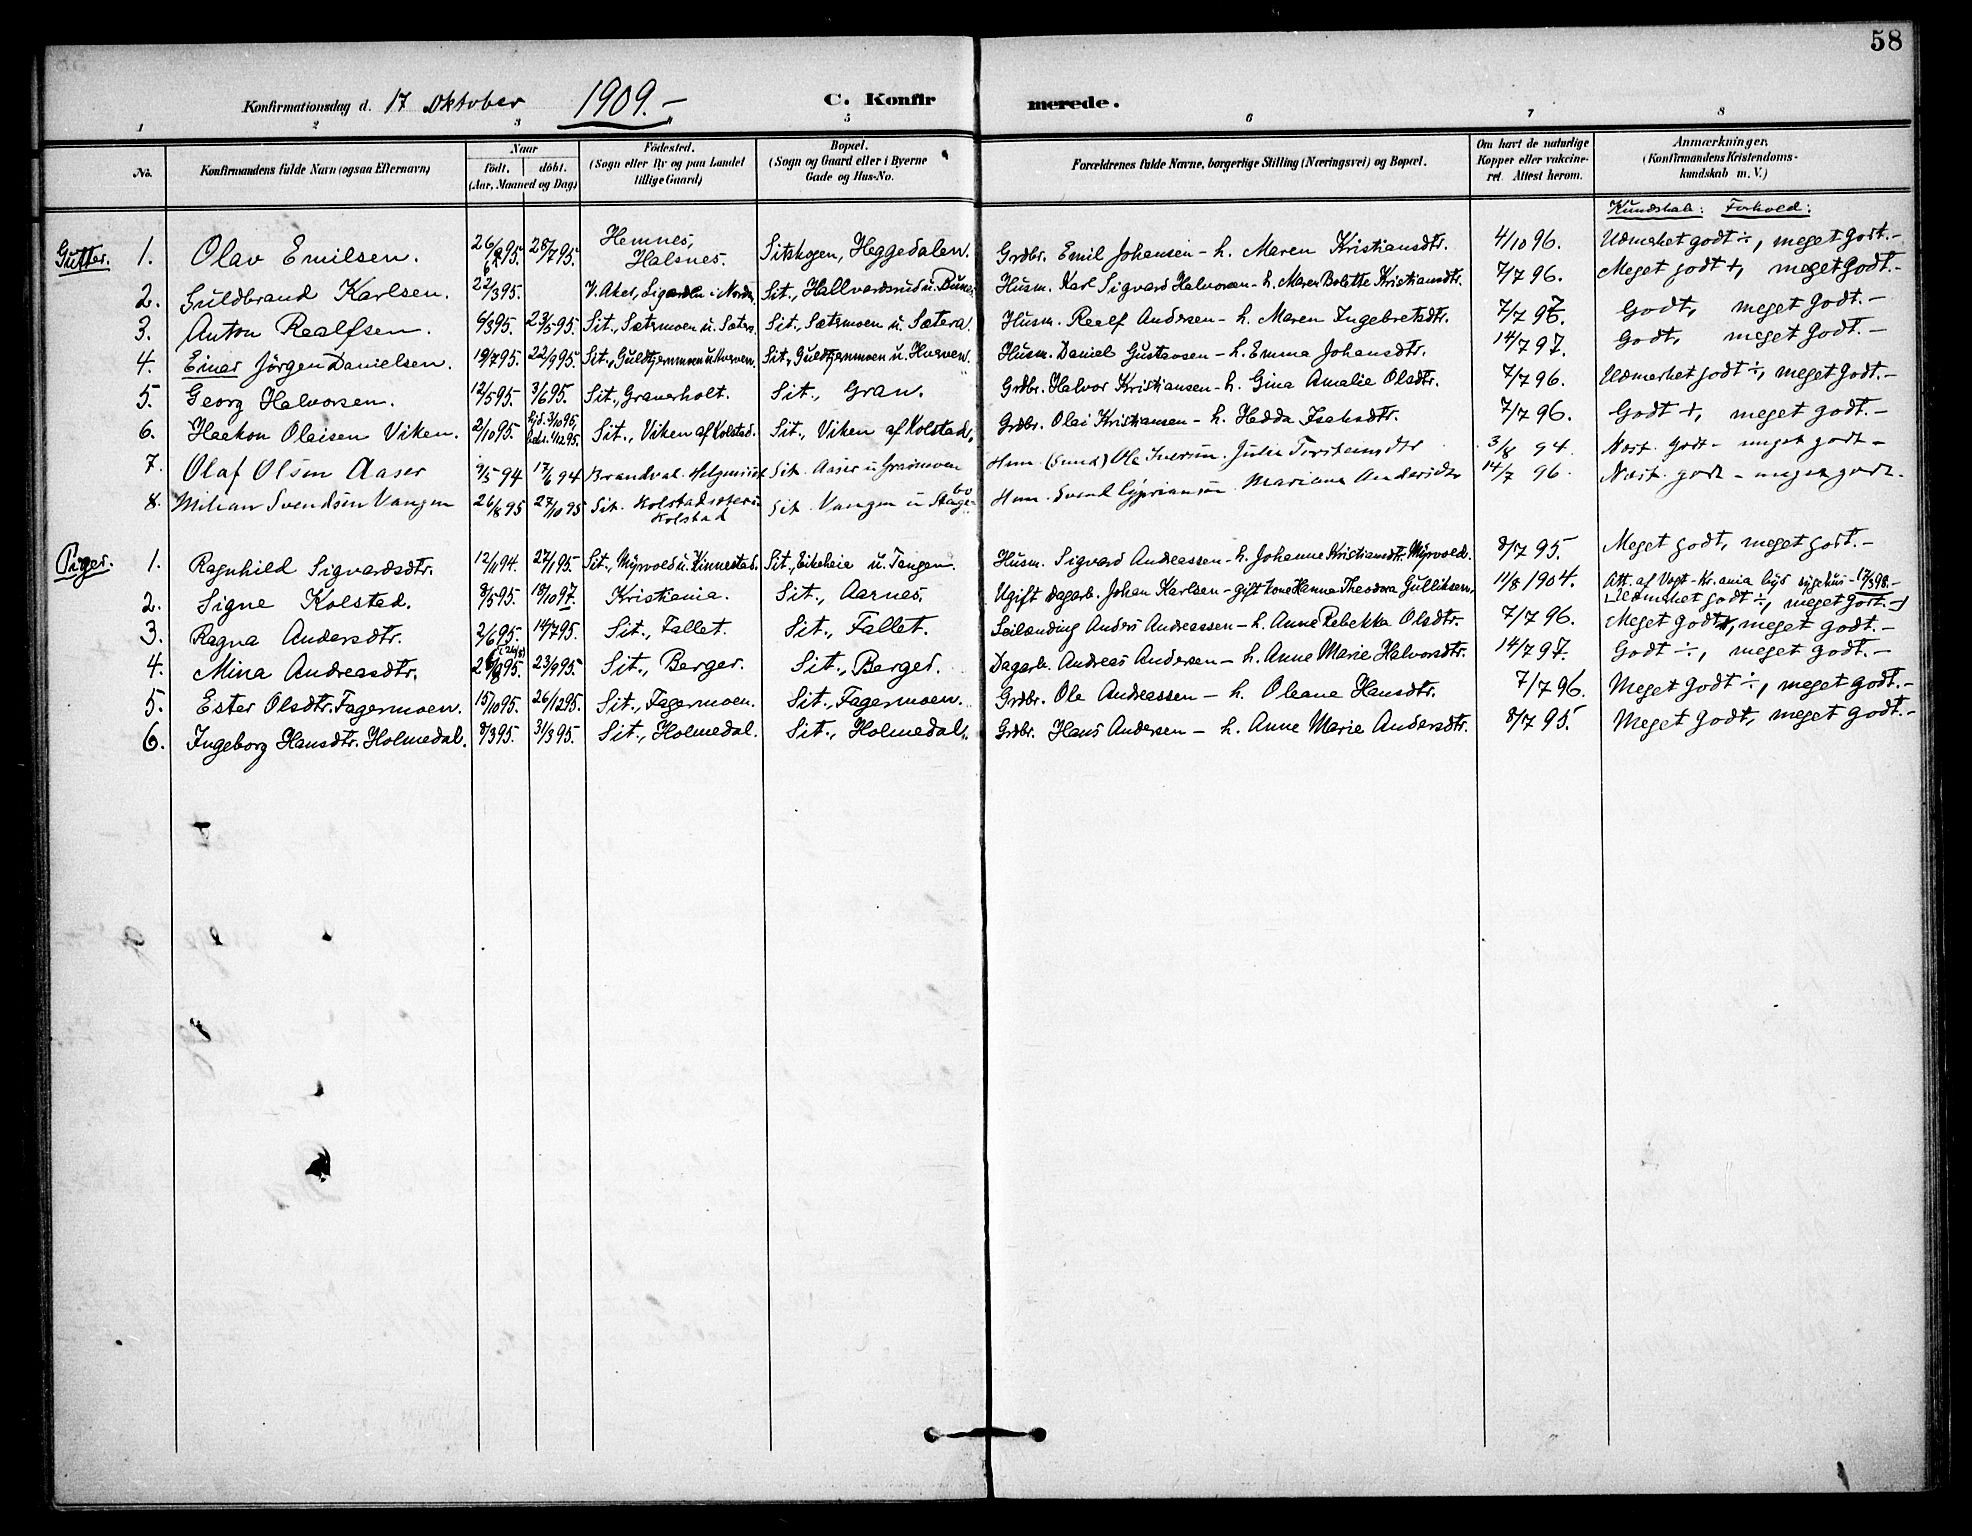 58
Konfirmationsdag d. 17 Oktober 1909.- C. Konfirmerede.
1 2 3 4 5 6 7 8
No. Konfirmandens fulde Navn (ogsaa Efternavn) Naar född. döbt. (Aar, Maaned og Dag) Födested. (Sogn eller By og paa Landet tillige Gaard) Bopæl. (Sogn og Gaard eller i Byerne Gade og Hus-No. Forældrenes fulde Navne, borgerlige Stilling (Næringsvei) og Bopæl. Om havt de naturlige Kopper eller vakcineret. Attest herom. Anmærkninger. (Konfirmandens Kristendomskundskab m. V.)
Kundskab: Forhold:
Gutter. 1. Olav Emilsen. 28/795. Hemnes, Halsnes. Sitskogen, Heggedalen. Grdbr. Emil Johansen - h. Maren Kristiansdtr. 4/10 96. Udmerket godt ÷, meget godt.-
2. Guldbrand Karlsen. 22/395. V. Aker, Sit., Hallvardsrud u. Husm. Karl Sigvard Halvorsen - h. Maren Bolette Kristiansdtr. 7/7 96. Meget godt +, meget godt.-
3. Anton Realfsen. 6/395. 23/5-95. Sit., Sætermoen u. Sætera. Sit., Sætermoen u. Sætera. Husm. Realf Andersen - h. Maren Ingebretsdtr. 7/7 96. Godt, meget godt.-
4. Einar Jörgen Danielsen. 19/795. 22/995. Sit., Guldtjernmoen u. Hverven. Sit., Guldtjernmoen u. Hverven. Husm. Daniel Gustavsen - h. Emma Johansdtr. 14/7 97. Godt, meget godt.-
5. Georg Halvorsen. 12/595. 3/695. Sit., Graverholt. Sit., Gran. Grdbr. Halvor Kristiansen - h. Gina Amalie Olsdtr. 7/7 96. Udmerket godt ÷, meget godt.-
6. Haakon Olaisen Viken. 2/1095. Hjd. 3/1095, Sit., Viken af Kolstad. Sit., Viken af Kolstad. Grdbr. Olai Kristiansen - h. Hedda Isaksdtr. 7/7 96. Godt +, meget godt.-
7. Olaf Olsen Aaser 9/5 94 17/6 94 Brandval. Sit. Aaser u Graamoen Husm. Ole Iversen. Julie Torstensdtr 3/8 94. Næst. godt - meget godt -
8. Milian Svendsen Vangen 26/8 95 27/10 95 Sit. Kolstad Sit. Vangen u Husm. Svend Cyprianson Mariane Andersdtr 14/7 96. Næst. godt - meget godt.
Piger. 1. Ragnhild Sigvardsdtr. 12/1194. 27/195. Sit., Myrvold u. Kinnestad. Sit., Eikeheia u. Tangen. Husm. Sigvard Andreassen - h. Johanne Kristiansdtr. Myrvold. 8/7 95. Meget godt, meget godt.-
2. Signe Kolstad. 8/595. 18/1097. Kristiania. Sit., Aarnes. Ugift dagarb. Johan Karlsen - gift kone Hanna Theodora Gulliksen. 11/8 1904. Att. af Vogt - Kr.ania bys sygehus - 17/398.-
Udmerket godt ÷, meget godt.-
3. Ragna Andersdtr. 2/695. 14/795. Sit., Fallet. Sit., Fallet. Selvending Anders Andreassen - h. Anne Rebekka Olsdtr. 7/7 96. Meget godt, meget godt.-
4. Mina Andreasdtr. 23/995. Sit., Berger. Sit., Berger. Dagarb. Andreas Andersen - h. Anne Marie Halvorsdtr. 14/7 97. Godt ÷, meget godt.-
5. Ester Olsdtr. Fagermoen. 15/1095. 26/1295. Sit., Fagermoen. Sit., Fagermoen. Grdbr. Ole Andreassen - h. Oleane Hansdtr. 7/7 96. Meget godt ÷, meget godt.-
6. Ingeborg Hansdtr. Holmedal. 8/395. 31/395. Sit., Holmedal. Sit., Holmedal. Grdbr. Hans Andersen - h. Anne Marie Andersdtr. 8/7 95. Meget godt, meget godt.-